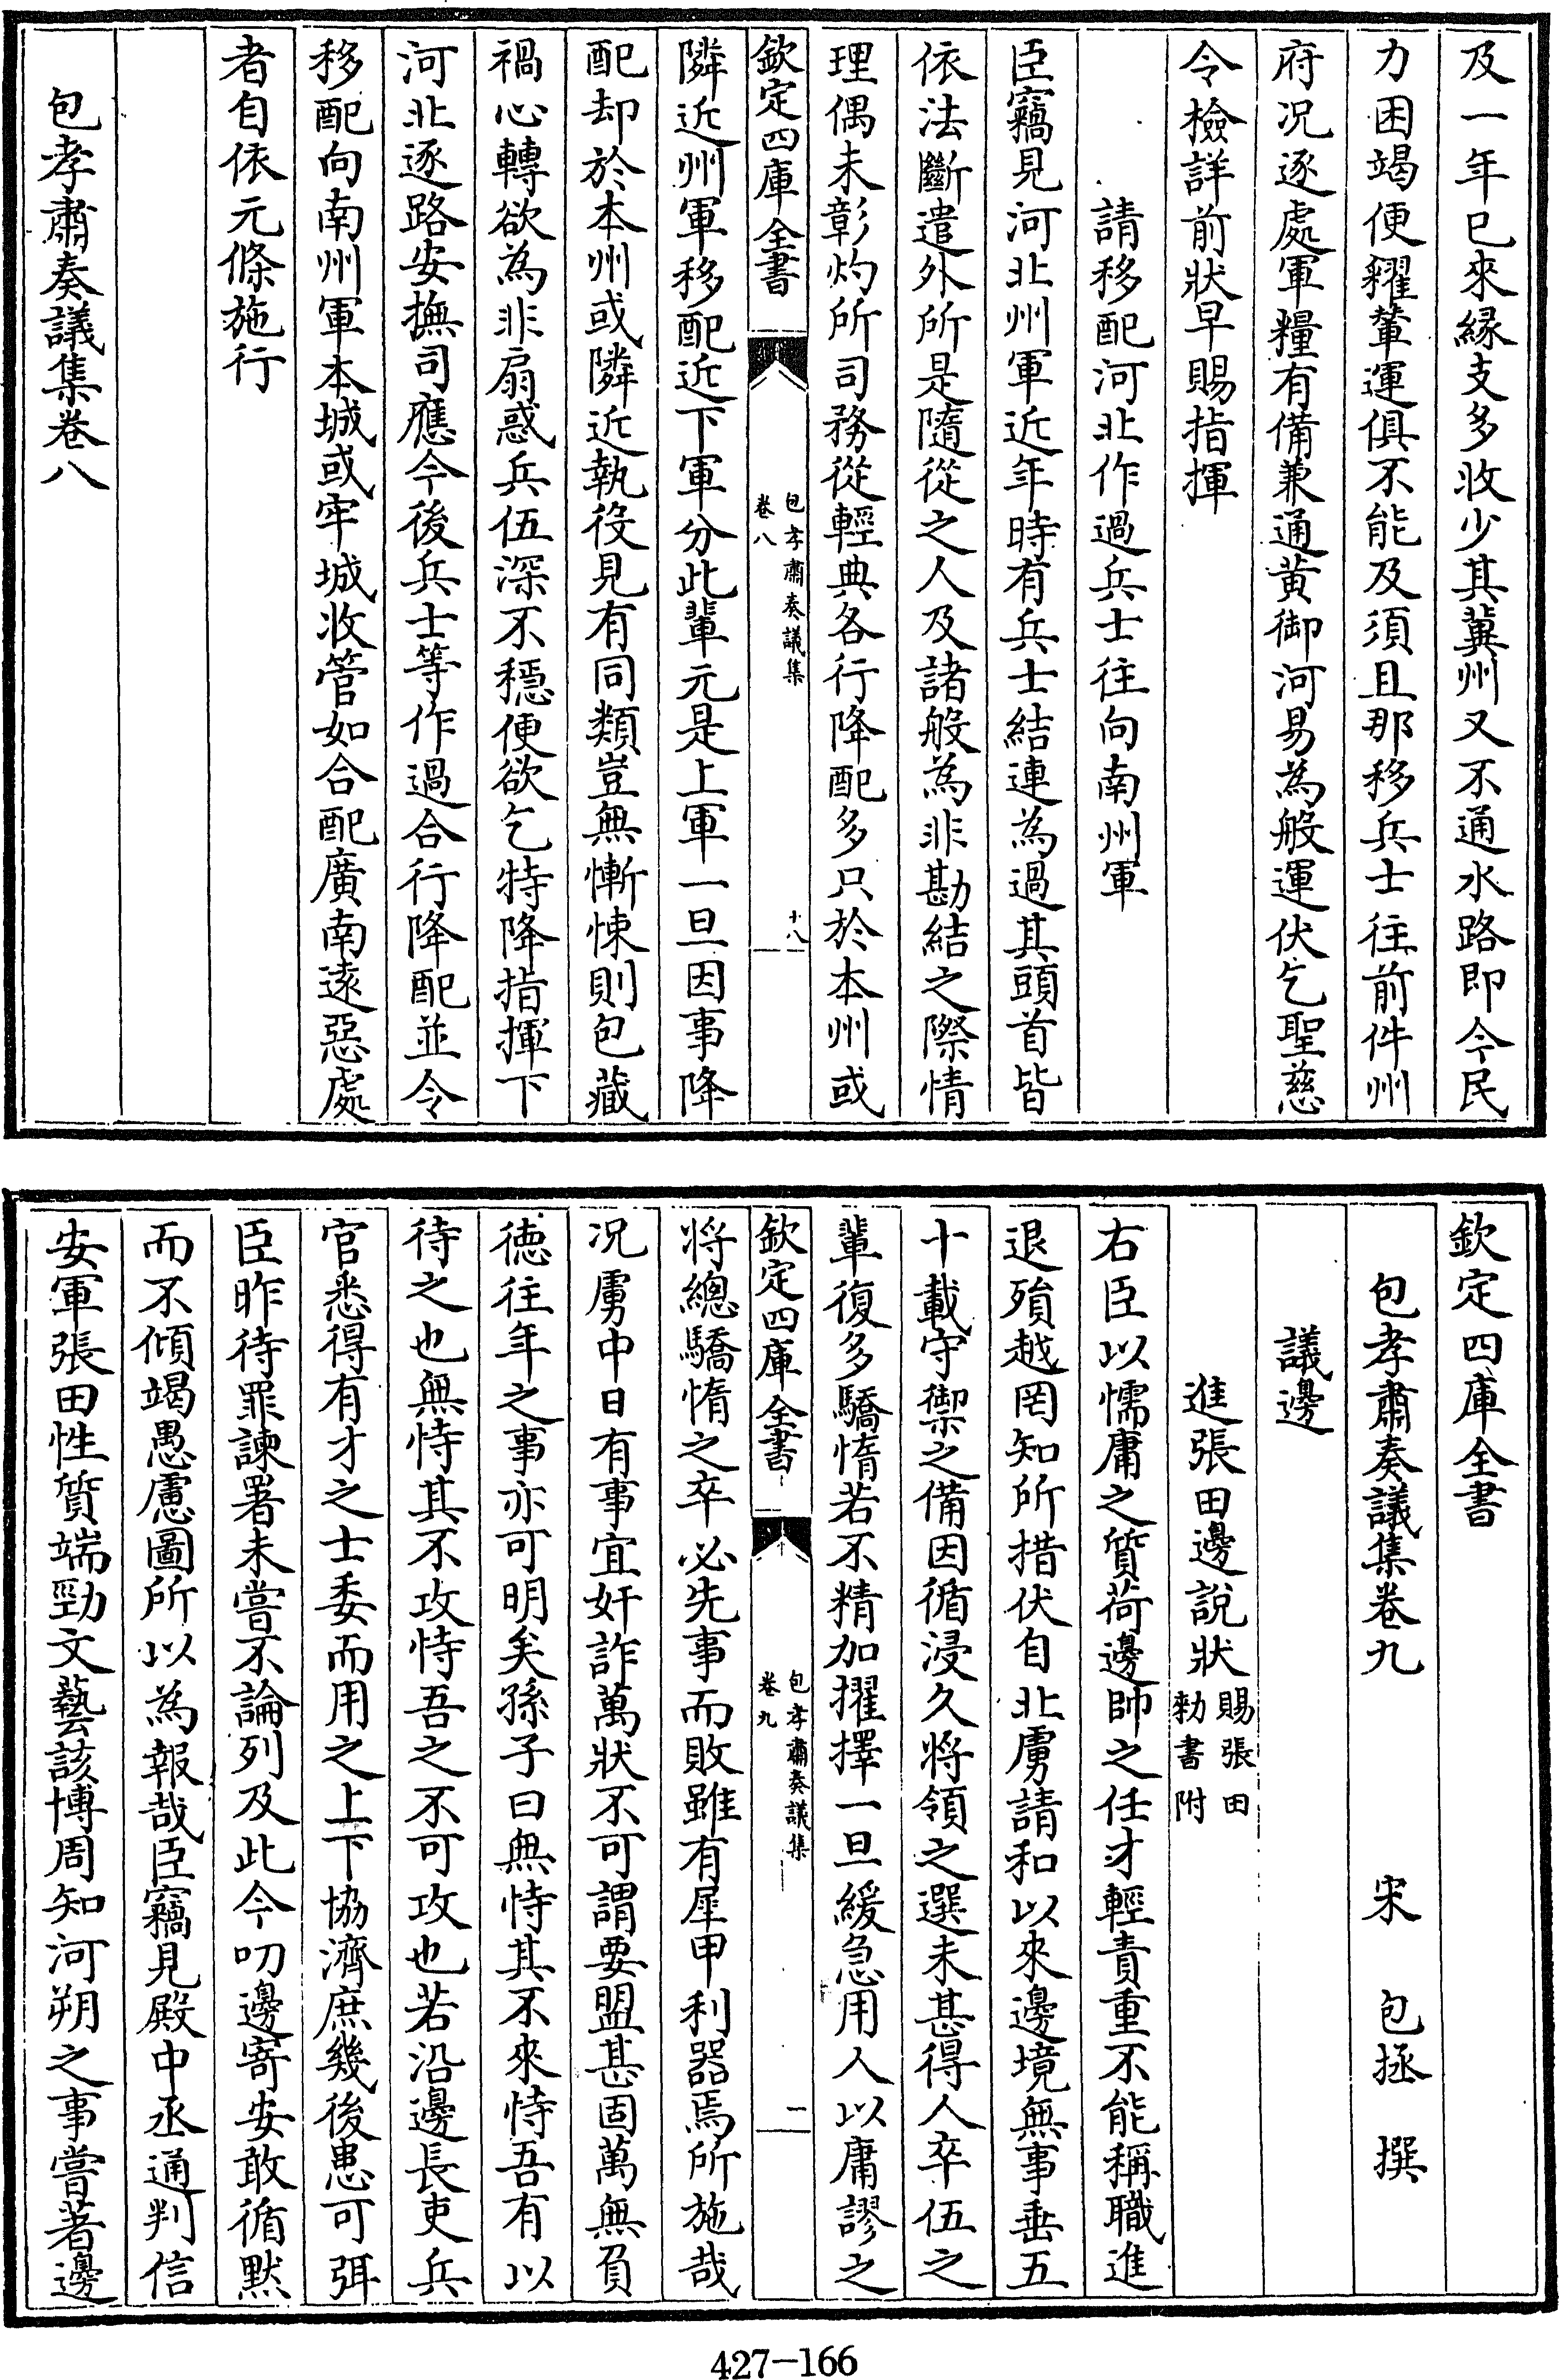 及一年已來縁支多收少其冀州又不通水路即今民
力困竭便糴輦運俱不能及須且那移兵士往前件州
府况逐處軍糧有備兼通黄御河易為般運伏乞聖慈
令檢詳前狀早賜指揮
請移配河北作過兵士往向南州軍
臣竊見河北州軍近年時有兵士結連為過其頭首皆
依法斷遣外所是隨從之人及諸般為非勘結之際情
理偶未彰灼所司務從輕典各行降配多只於本州或
欽定四庫全書
包孝肅奏議集
卷八
十八
隣近州軍移配近下軍分此輩元是上軍一旦因事降
配却於本州或隣近執役見有同類豈無慚悚則包藏
禍心轉欲為非扇惑兵伍深不穩便欲乞特降指揮下
河北逐路安撫司應今後兵士等作過合行降配並令
移配向南州軍本城或牢城收管如合配廣南遠惡處
者自依元條施行
包孝肅奏議集卷八
欽定四庫全書
包孝肅奏議集卷九
宋 包拯 撰
議邊
進張田邊說狀
賜張田
勑書附
右臣以懦庸之質荷邊帥之任才輕責重不能稱職進
退殞越罔知所措伏自北虜請和以來邊境無事垂五
十載守禦之備因循浸久将領之選未甚得人卒伍之
輩復多驕惰若不精加擢擇一旦緩急用人以庸謬之
欽定四庫全書
包孝肅奏議集
卷九
一
將總驕惰之卒必先事而敗雖有犀甲利器焉所施哉
况虜中日有事宜奸詐萬狀不可謂要盟甚固萬無負
徳往年之事亦可明矣孫子曰無恃其不來恃吾有以
待之也無恃其不攻恃吾之不可攻也若沿邊長吏兵
官悉得有才之士委而用之上下協濟庶幾後患可弭
臣昨待罪諫署未嘗不論列及此今叨邊寄安敢循黙
而不傾竭愚慮圖所以為報哉臣竊見殿中丞通判信
安軍張田性質端勁文藝該博周知河朔之事嘗著邊
427-166